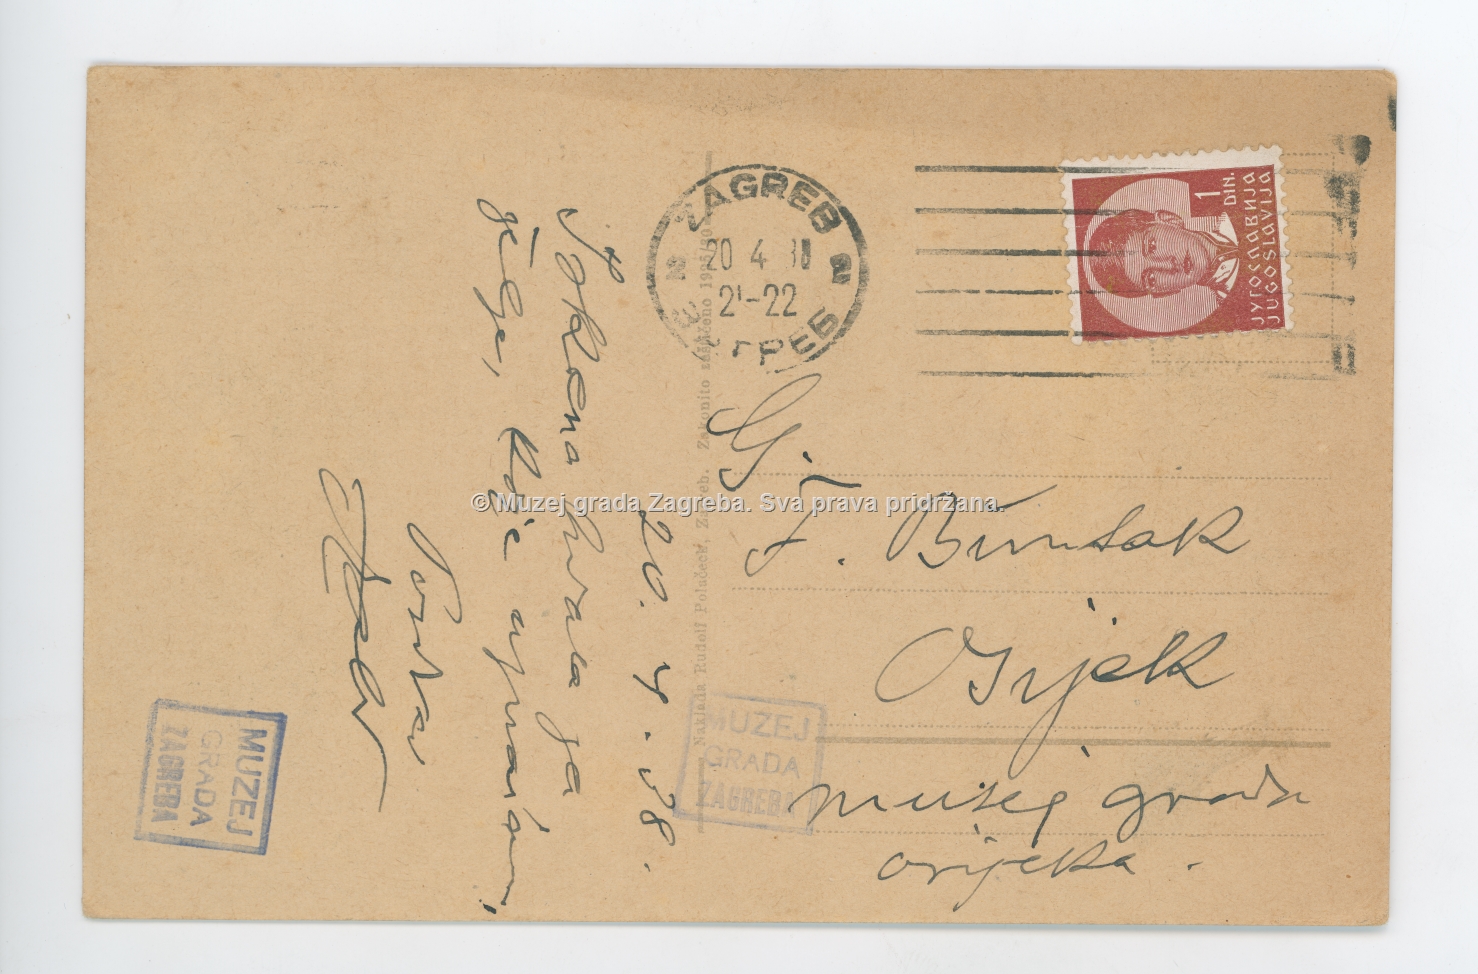 20. 4. 38.
Srdačna hvala za
želje, koje uzvraćam,
Pozdrav
ZAGREB
2 20 4 38 2
21-22
ЗАГРЕБ
1
DIN.
ЈУГОСЛАВИЈА
JUGOSLAVIJA
Gj.
F. Buntak
Osijek
muzej grada
osijeka.
Naklada Rudolf Polaček, Zagreb. Zakonito zaštićeno
MUZEJ
GRADA
ZAGREBA
MUZEJ
GRADA
ZAGREBA
© Muzej grada Zagreba. Sva prava pridržana.